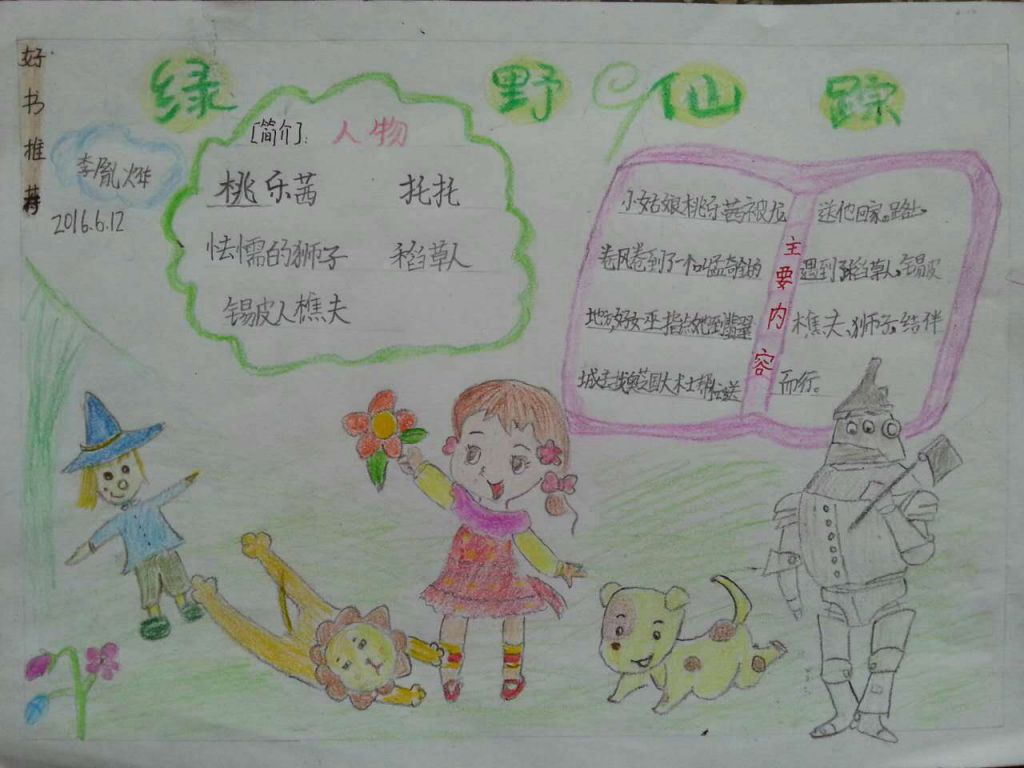 好书推荐
绿野仙踪
李胤烨
2016.6.12
[简介]: 人物
桃乐茜 托托
怯懦的狮子 稻草人
锡皮人樵夫
主要内容
小姑娘桃乐茜被龙
卷风卷到了一个叫孟奇金的
地方好女巫指点她至翡翠
城去找奥芝国大术士帮忙送
送他回家。路上
遇到了稻草人、锡皮
樵夫、狮子、结伴
而行。